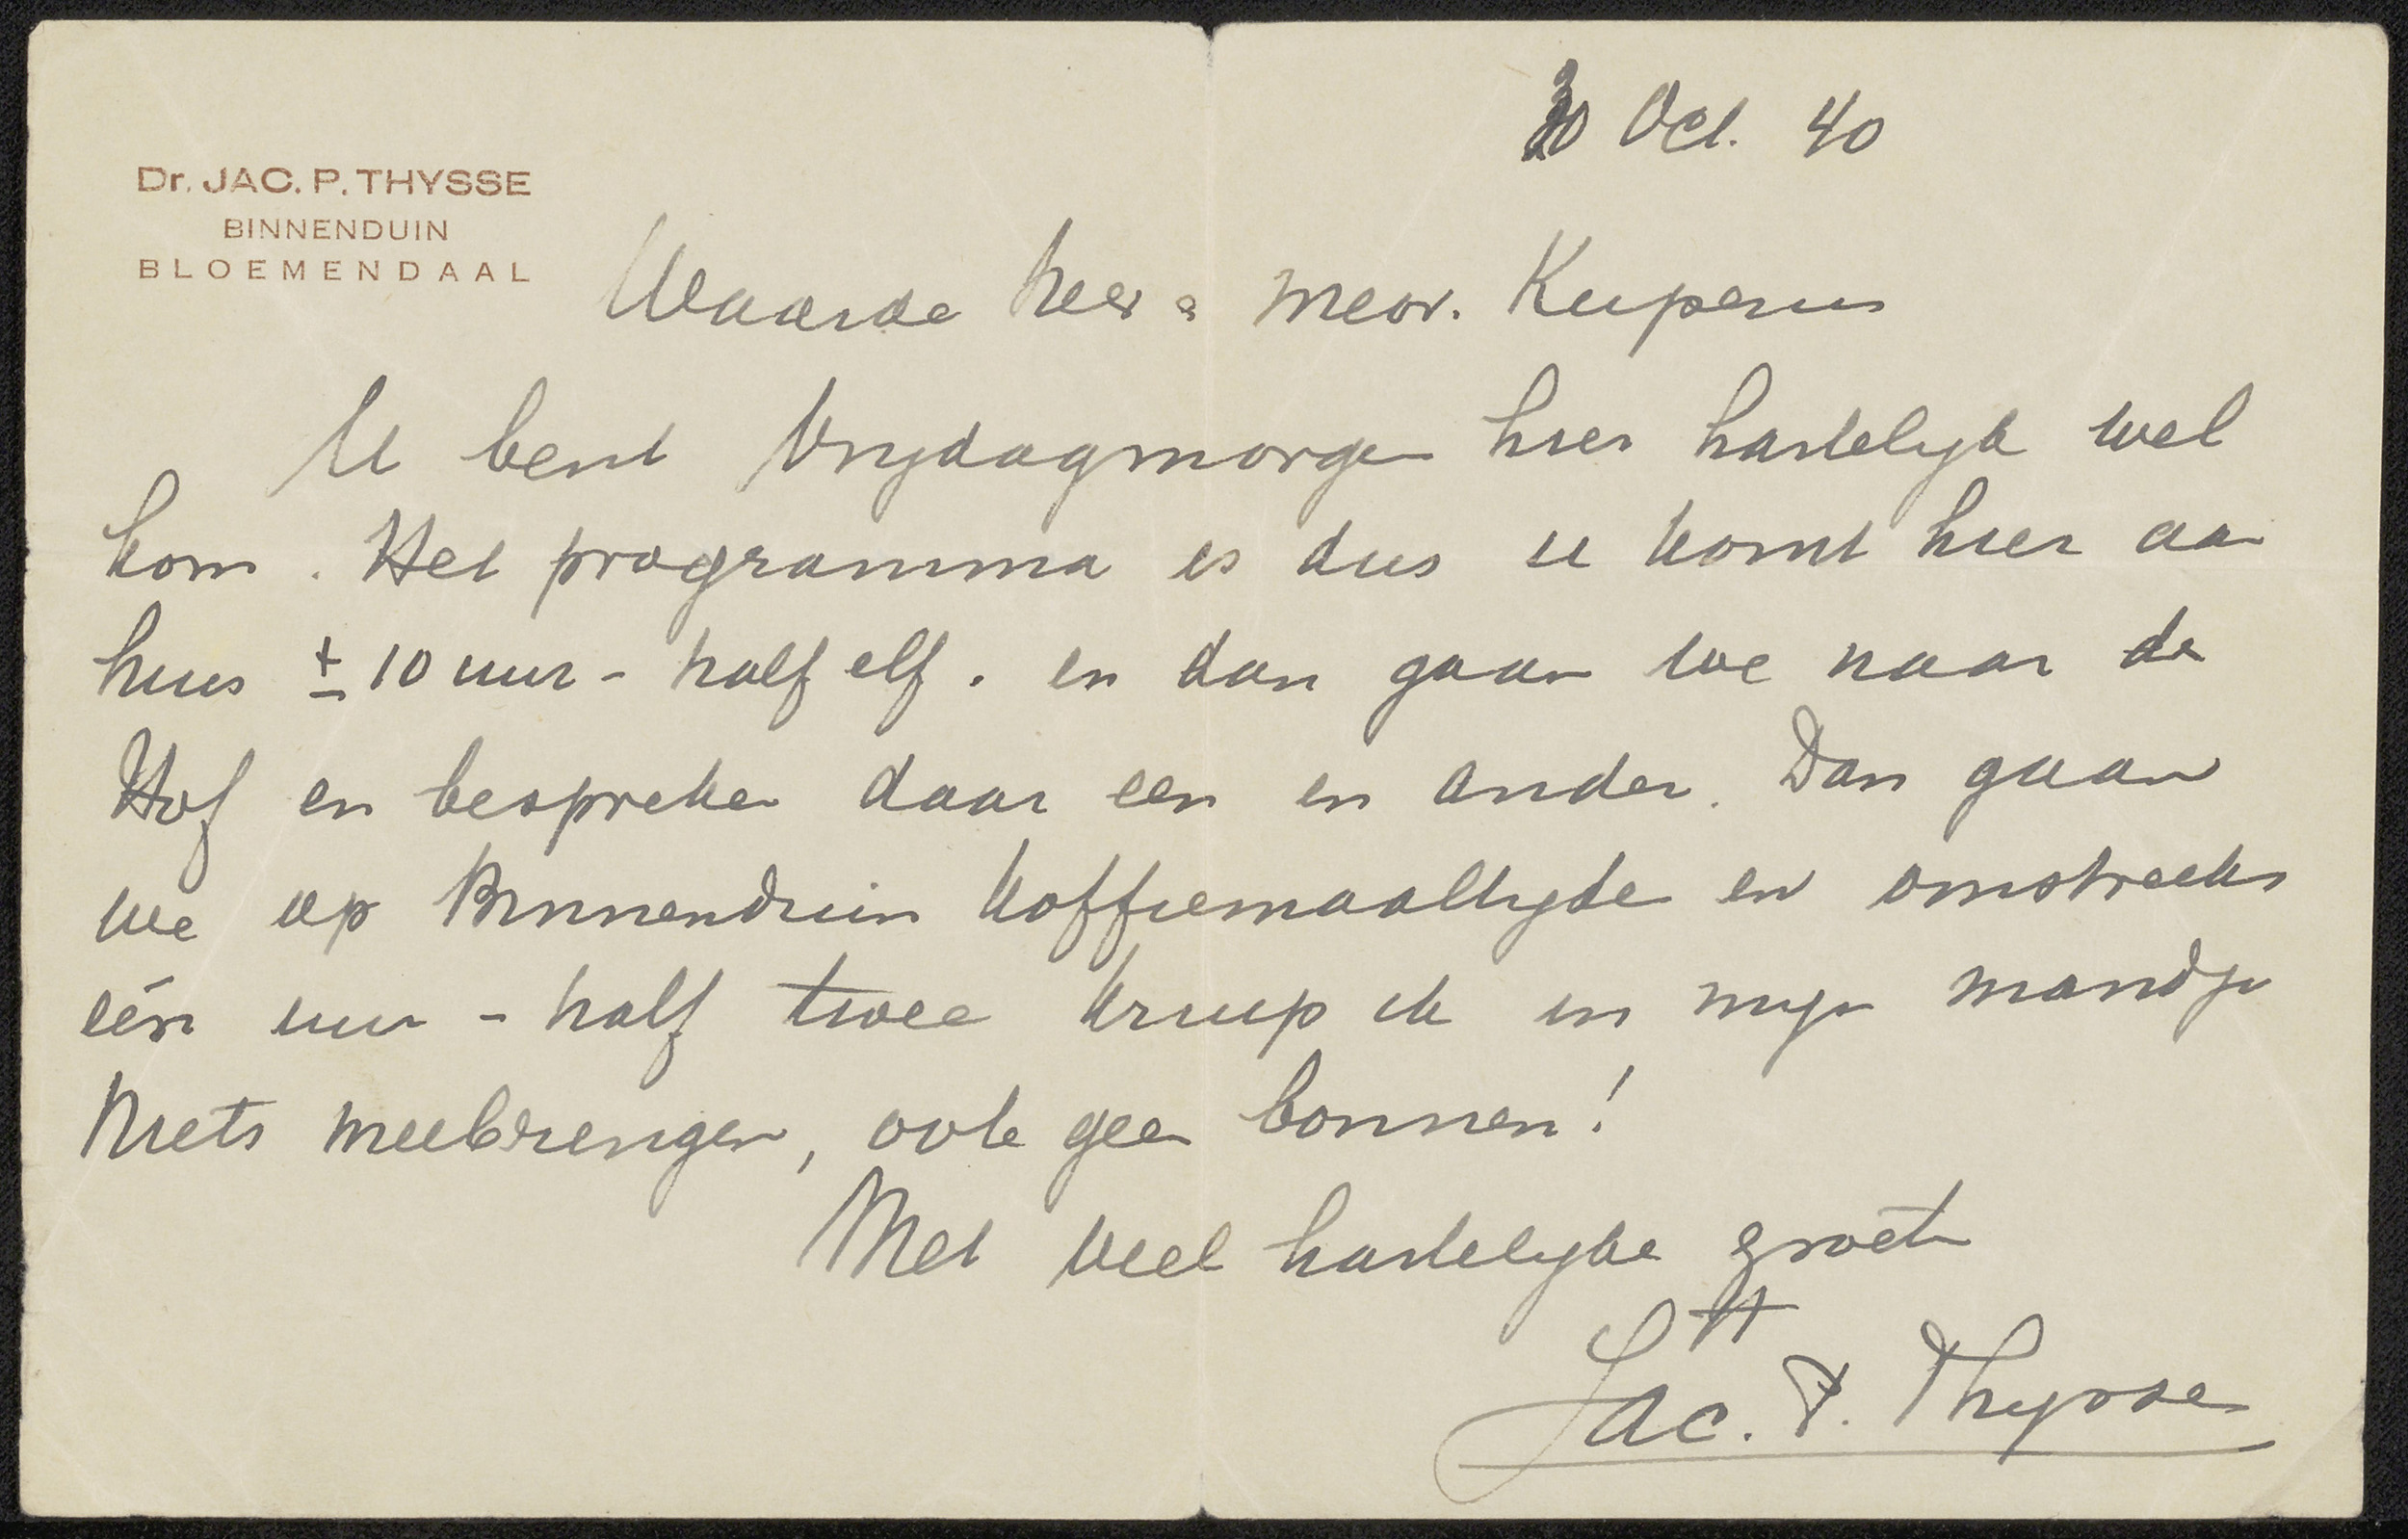 30 Oct. 40
Dr. JAC. P. THYSSE
BINNENDUIN
BLOEMENDAAL
Waarde heer & mevr. Kuperus
U bent Vrydagmorgen hier hartelyk wel
kom. Het programma is dus u komt hier aan
huis ± 10 uur - half elf. en dan gaan we naar de
Hof en bespreken daar een en ander. Dan gaan
we op Binnenduin koffiemaaltyden en omstreeks
één uur - half twee kruip ik in myn mandje
Niets meebrengen, ook geen bonnen!
Met veel hartelyke groeten
tt
Jac. P. Thysse